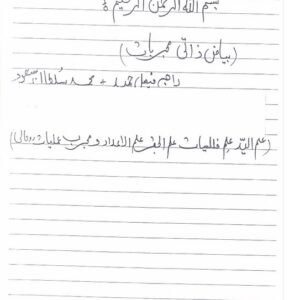 بسم اللہ الرحمن الرحیم
(بیاض ذاتی مجربات)
راجہ فیصل + محمد سلطان مسعود
(علم الید علم فلکیات علم الجفر علم الاعداد و مجرب عملیات روحانی)